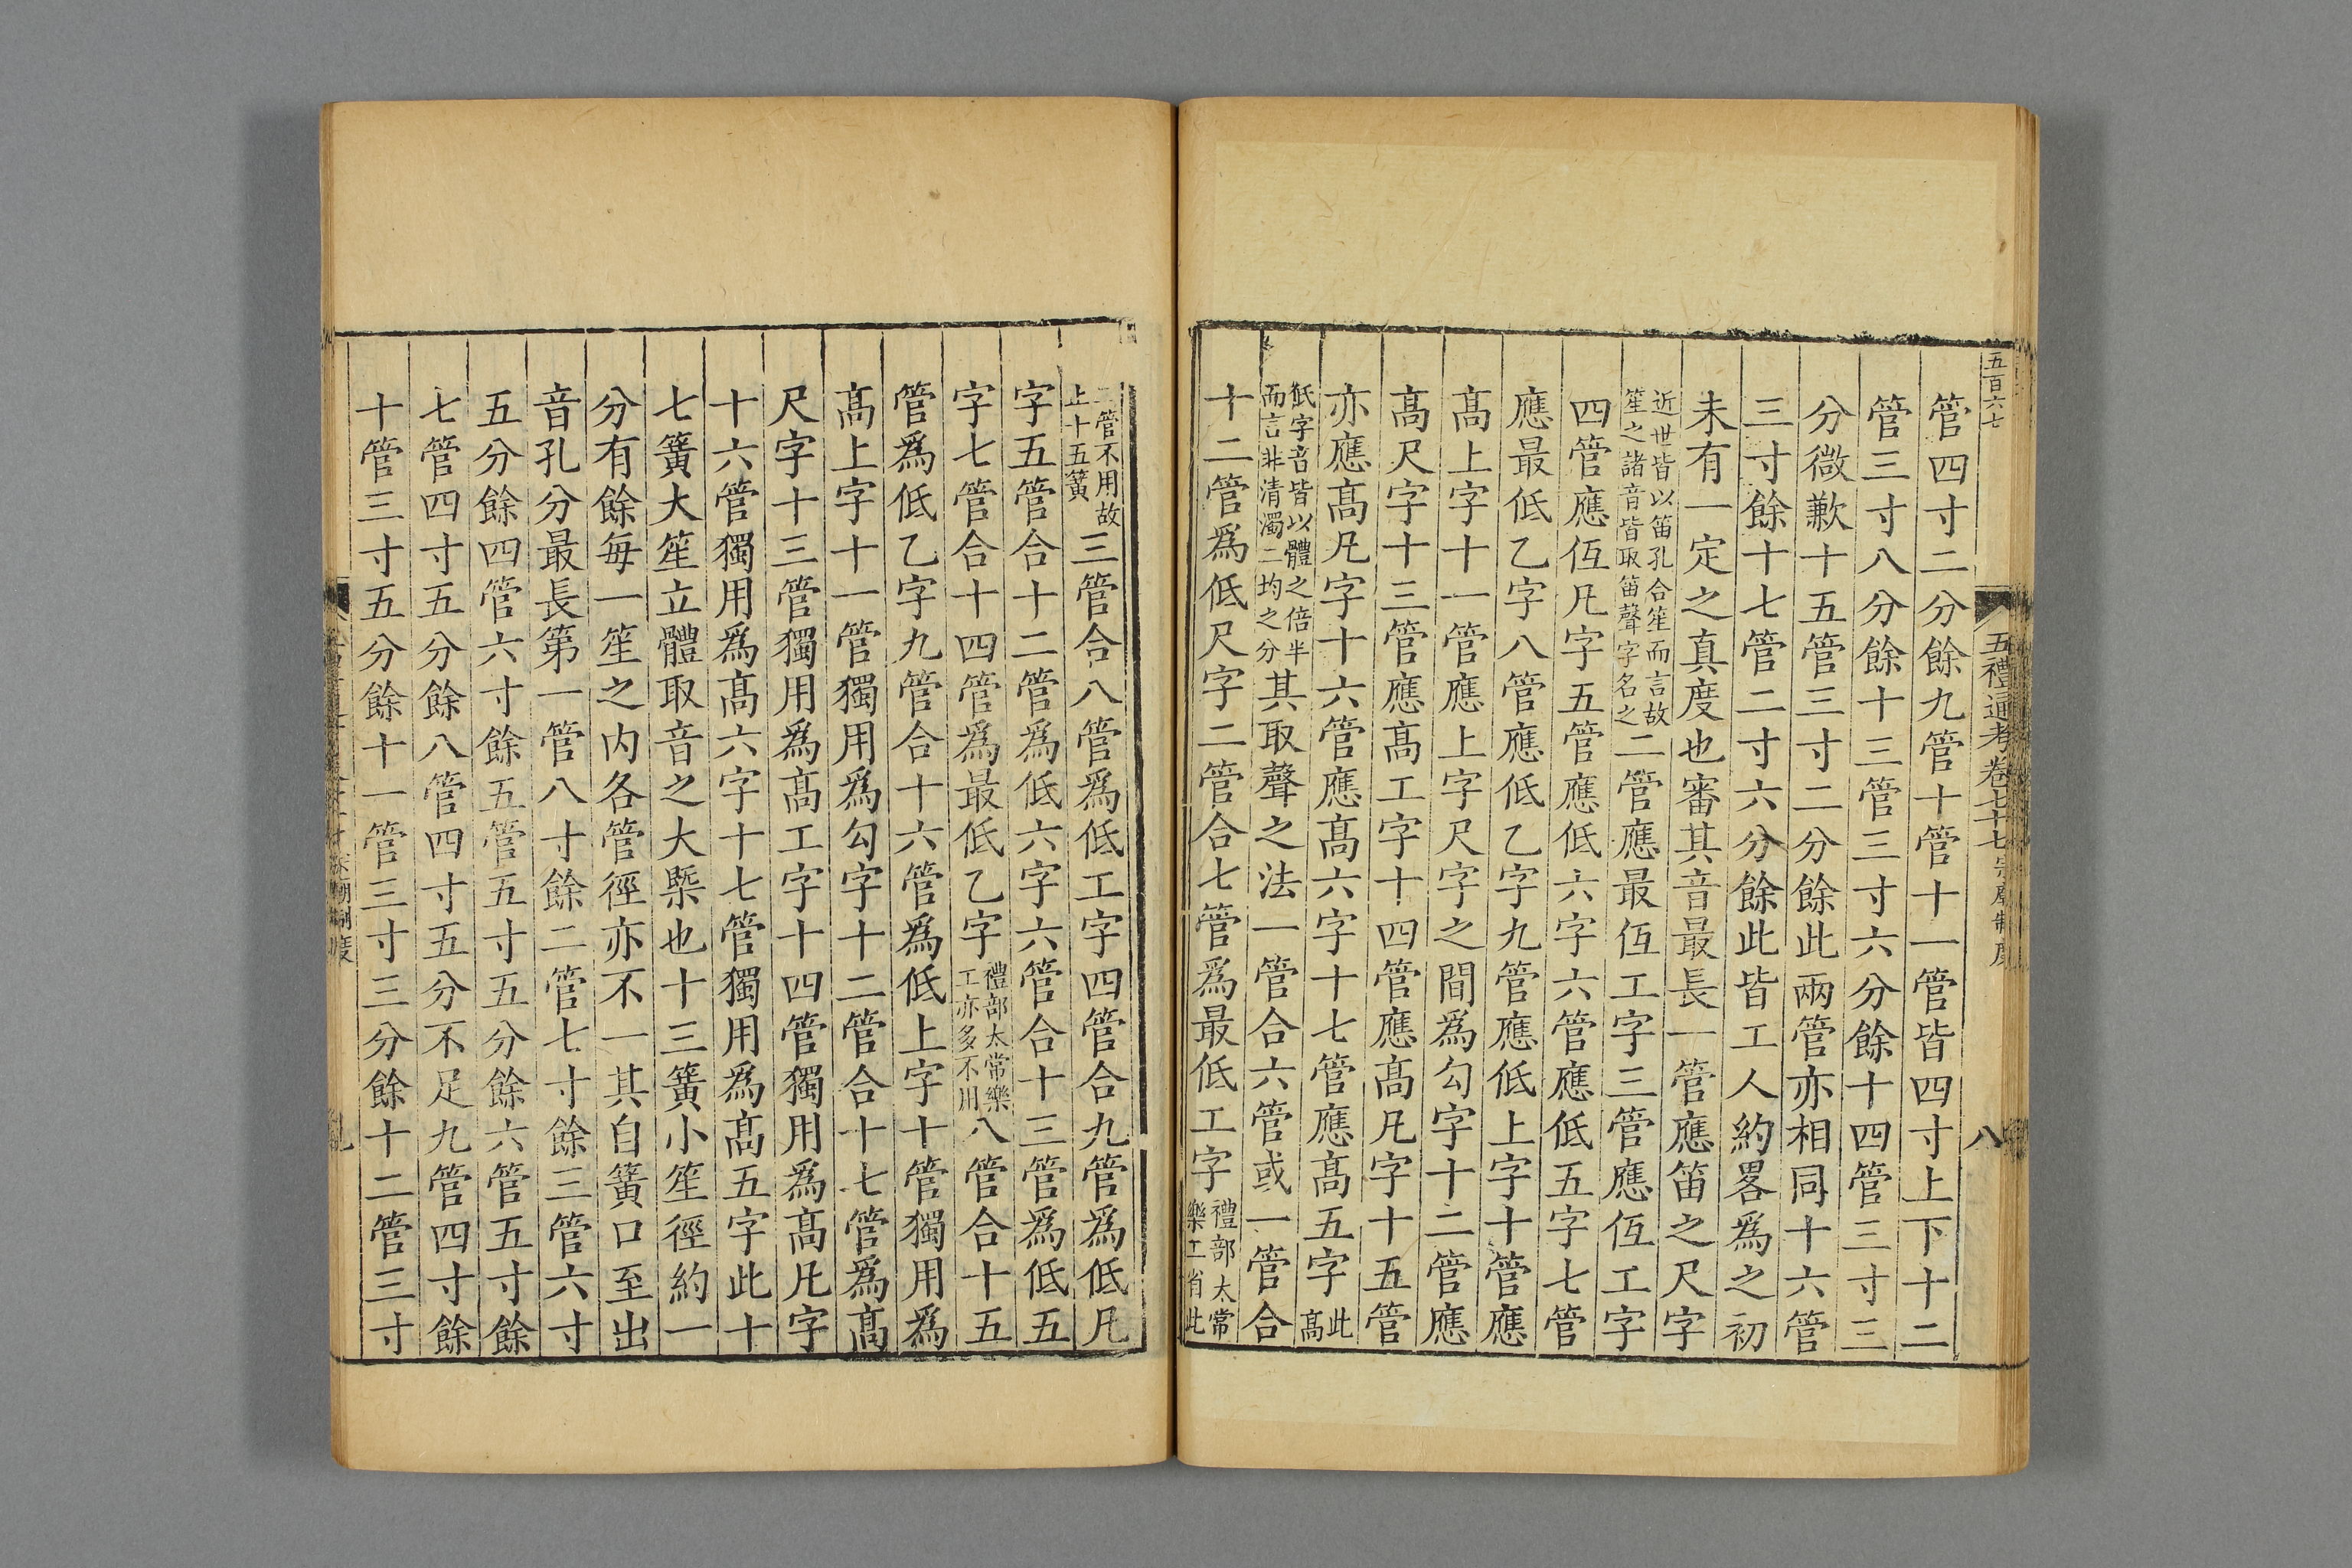 五百六七
五禮通考卷七十七 宗廟制度
八
管四寸二分餘九管十管十一管皆四寸上下十二
管三寸八分餘十三管三寸六分餘十四管三寸三
分微歉十五管三寸二分餘此兩管亦相同十六管
三寸餘十七管二寸六分餘此皆工人約畧爲之初
未有一定之真度也審其音最長一管應笛之尺字
近世皆以笛孔合笙而言故
笙之諸音皆取笛聲字名之
二管應最低工字三管應低工字
四管應低凡字五管應低六字六管應低五字七管
應最低乙字八管應低乙字九管應低上字十管應
髙上字十一管應上字尺字之間爲勾字十二管應
髙尺字十三管應髙工字十四管應髙凡字十五管
亦應髙凡字十六管應髙六字十七管應髙五字
此
髙
低字音皆以體之倍半
而言非清濁二均之分
其取聲之法一管合六管或一管合
十二管爲低尺字二管合七管爲最低工字
禮部太常
樂工省此
二管不用故
止十五簧
三管合八管爲低工字四管合九管爲低凡
字五管合十二管爲低六字六管合十三管爲低五
字七管合十四管爲最低乙字
禮部太常樂
工亦多不用
八管合十五
管爲低乙字九管合十六管爲低上字十管獨用爲
髙上字十一管獨用爲勾字十二管合十七管爲髙
尺字十三管獨用爲髙工字十四管獨用爲髙凡字
十六管獨用爲髙六字十七管獨用爲髙五字此十
七簧大笙立體取音之大槩也十三簧小笙徑約一
分有餘每一笙之内各管徑亦不一其自簧口至出
音孔分最長第一管八寸餘二管七寸餘三管六寸
五分餘四管六寸餘五管五寸五分餘六管五寸餘
七管四寸五分餘八管四寸五分不足九管四寸餘
十管三寸五分餘十一管三寸三分餘十二管三寸